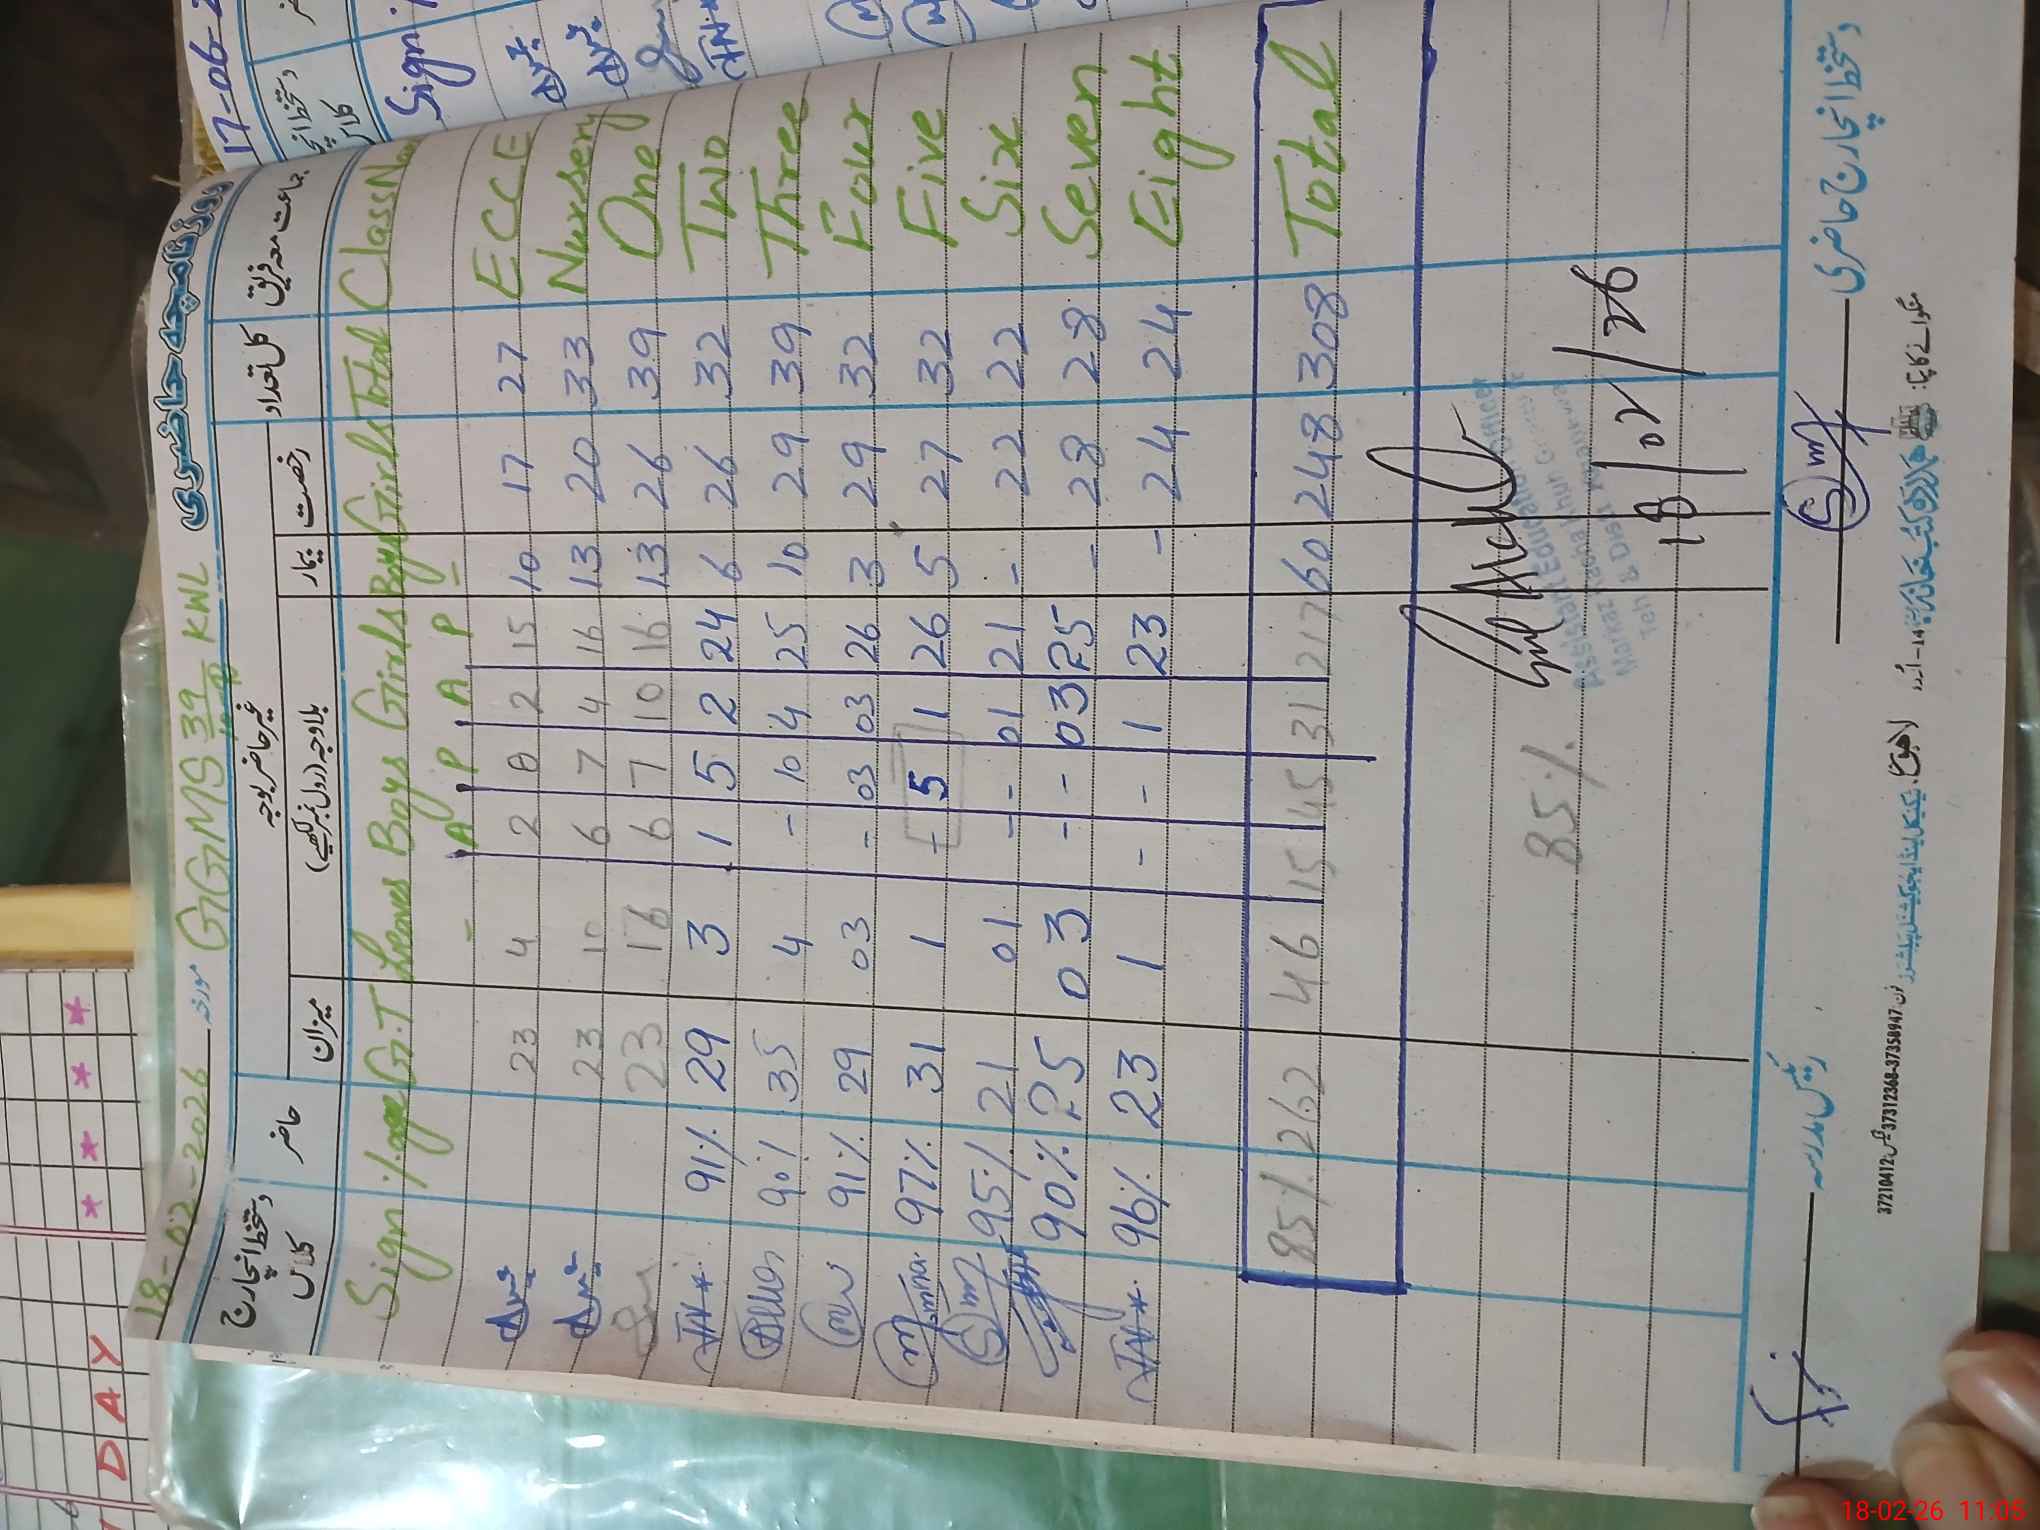 روزنامچہ حاضری
18-02-2026 مورخہ GGMS 39 KWL
جماعت معہ فریق کل تعداد غیر حاضر بوجہ حاضر دستخط انچارج کلاس
رخصت بیمار بلاوجہ (رول نمبر لکھیے) میزان
Sign %age G.T Leaves Boys Girls Boys Girls Total Class Na
A P A P
23 4 2 8 2 15 10 17 27 ECCE
23 10 6 7 4 16 13 20 33 Nursery
23 16 6 7 10 16 13 26 39 One
91% 29 3 1 5 2 24 6 26 32 Two
90% 35 4 - 10 4 25 10 29 39 Three
91% 29 03 - 03 03 26 3 29 32 Four
97% 31 1 - 5 1 26 5 27 32 Five
95% 21 01 - - 01 21 - 22 22 Six
90% 25 03 - - 03 25 - 28 28 Seven
96% 23 1 - - 1 23 - 24 24 Eight
85% 262 46 15 45 31 217 60 248 308 Total
Assistant Education Officer
85%
18/02/26
دستخط انچارج حاضری
رئیس مدرسہ
منگوانے کا پتا:
فون: 37358947-37312368 فیکس: 37210412
17-06-2
Sign
DAY
18-02-26 11:05